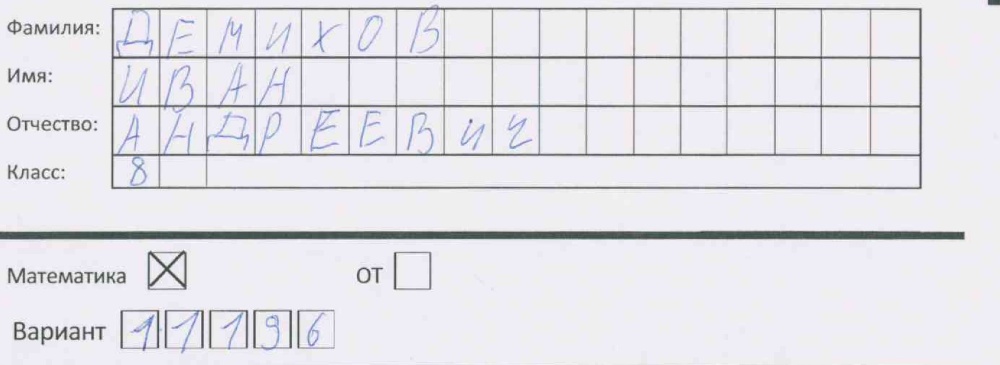 Фамилия: ДЕМИХОВ
Имя: ИВАН
Отчество: АНДРЕЕВИЧ
Класс: 8
Математика ☒ ОТ ☐
Вариант 11196